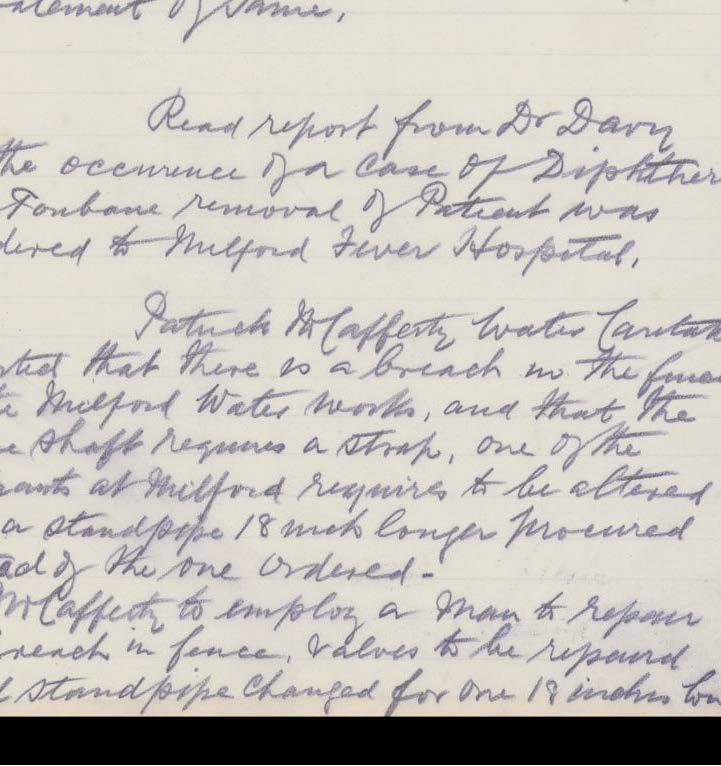 atement of Same.
Read report from Dr Davy
the occurence of a case of Diphther
Fonbane removal of Patient was
dered to Milford Fever Hospital.
Patrick McCafferty Water Caretak
rted that there is a breach in the fence
te Milford Water works, and that the
e shaft requires a strap, one of the
rants at Milford requires to be altered
a standpipe 18 inch longer procured
ead of the one ordered -
McCafferty to employ a man to repair
reach in fence, valves to be repaird
d standpipe changed for one 18 inches lon